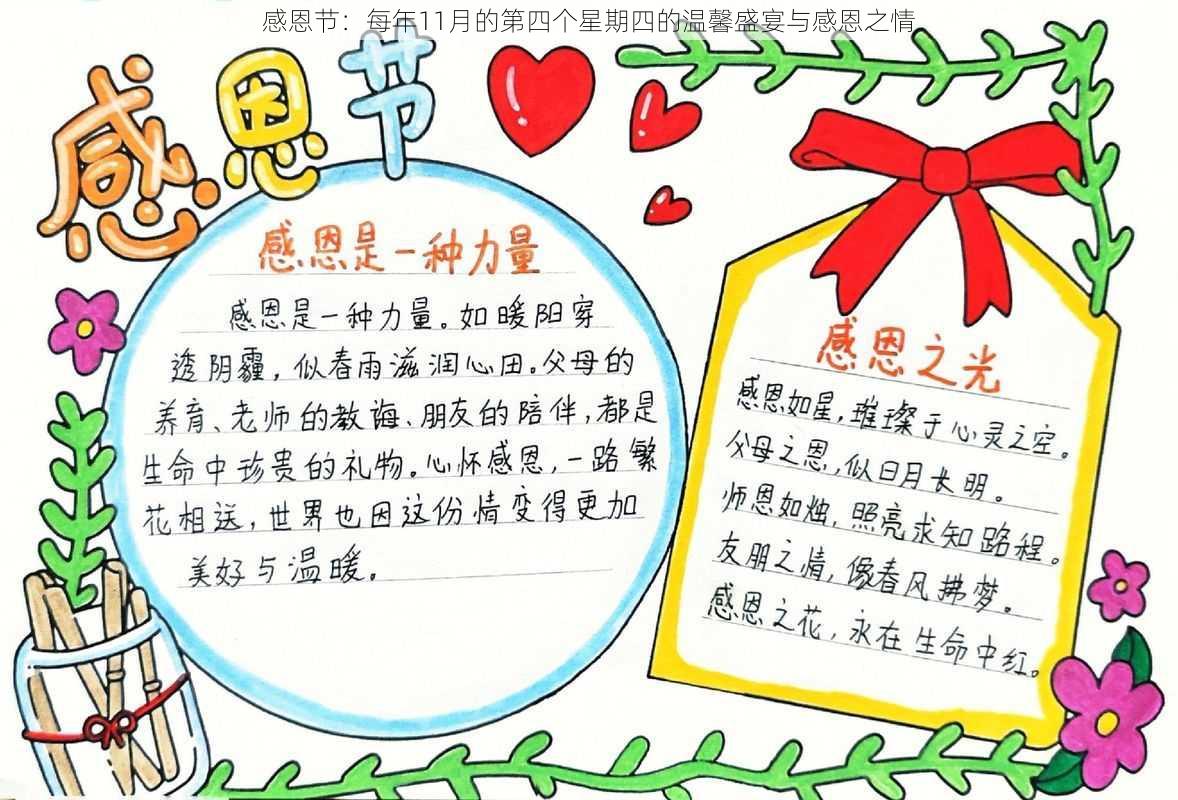 感恩节：每年11月的第四个星期四的温馨盛宴与感恩之情
感恩节
感恩是一种力量
感恩是一种力量。如暖阳穿
透阴霾，似春雨滋润心田。父母的
养育、老师的教诲、朋友的陪伴，都是
生命中珍贵的礼物。心怀感恩，一路繁
花相送，世界也因这份情变得更加
美好与温暖。
感恩之光
感恩如星，璀璨于心灵之空。
父母之恩，似日月长明。
师恩如烛，照亮求知路程。
友朋之情，像春风拂梦。
感恩之花，永在生命中红。